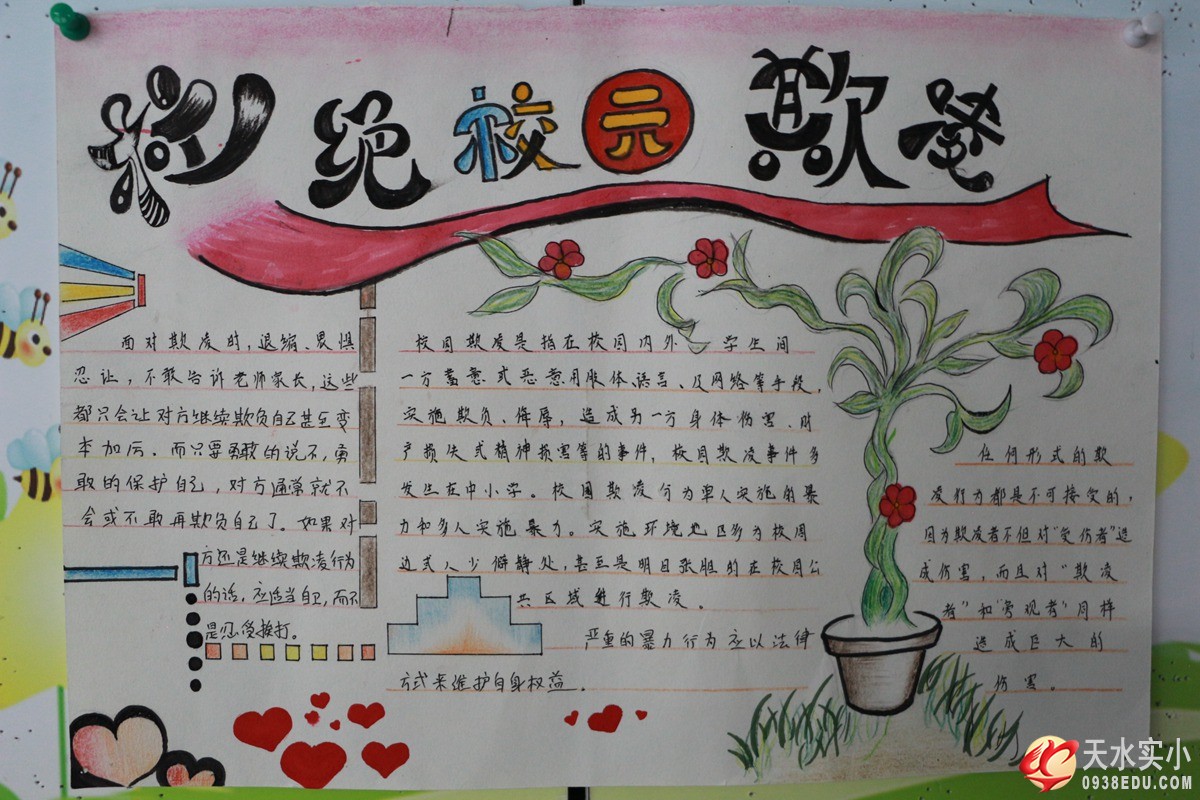 拒绝校园欺凌
面对欺凌时,退缩、畏惧
忍让,不敢告诉老师家长,这些
都只会让对方继续欺负自己甚至变
本加厉。而只要勇敢的说不,勇
敢的保护自己,对方通常就不
会或不敢再欺负自己了。如果对
方还是继续欺凌行为
的话,应适当自卫,而不
是忍受挨打。
校园欺凌是指在校园内外、学生间
一方蓄意或恶意用肢体、语言、及网络等手段,
实施欺负、侮辱,造成另一方身体伤害、财
产损失或精神损害等的事件,校园欺凌事件多
发生在中小学。校园欺凌分为单人实施的暴
力和多人实施暴力。实施环境地区多为校园
边或人少僻静处,甚至是明目张胆的在校园公
共区域进行欺凌。
严重的暴力行为应以法律
方式来维护自身权益。
任何形式的欺
凌行为都是不可接受的,
因为欺凌者不但对“受伤者”造
成伤害,而且对“欺凌
者”和“旁观者”同样
造成巨大的
伤害。
天水实小
0938EDU.COM